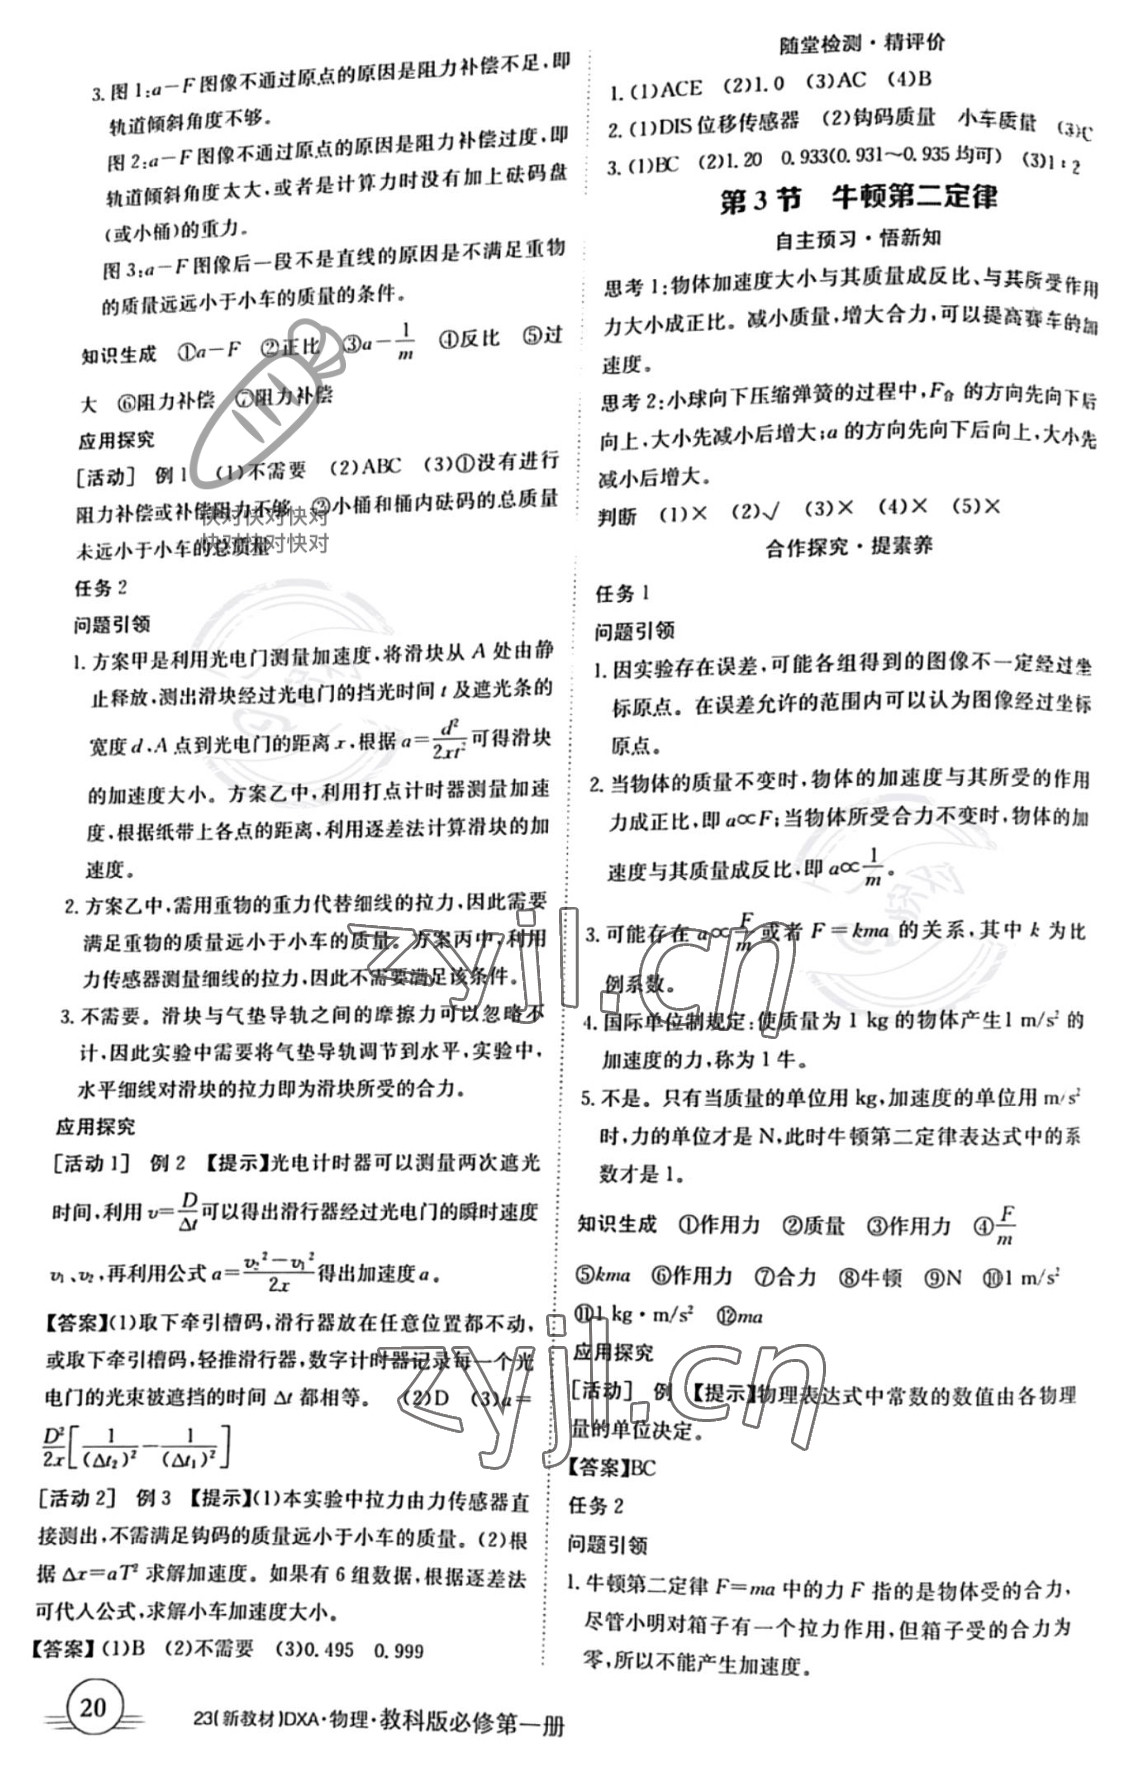 3. 图1:a-F图像不通过原点的原因是阻力补偿不足,即
轨道倾斜角度不够。
图2:a-F图像不通过原点的原因是阻力补偿过度,即
轨道倾斜角度太大,或者是计算力时没有加上砝码盘
(或小桶)的重力。
图3:a-F图像后一段不是直线的原因是不满足重物
的质量远远小于小车的质量的条件。
知识生成 ①a-F ②正比 ③a-1/m ④反比 ⑤过
大 ⑥阻力补偿 ⑦阻力补偿
应用探究
[活动] 例1 (1)不需要 (2)ABC (3)①没有进行
阻力补偿或补偿阻力不够 ②小桶和桶内砝码的总质量
未远小于小车的总质量
快对快对快对
快对快对快对
任务2
问题引领
1. 方案甲是利用光电门测量加速度,将滑块从A处由静
止释放,测出滑块经过光电门的挡光时间t及遮光条的
宽度d、A点到光电门的距离x,根据a=d²/2xt²可得滑块
的加速度大小。方案乙中,利用打点计时器测量加速
度,根据纸带上各点的距离,利用逐差法计算滑块的加
速度。
2. 方案乙中,需用重物的重力代替细线的拉力,因此需要
满足重物的质量远小于小车的质量。方案丙中,利用
力传感器测量细线的拉力,因此不需要满足该条件。
3. 不需要。滑块与气垫导轨之间的摩擦力可以忽略不
计,因此实验中需要将气垫导轨调节到水平,实验中,
水平细线对滑块的拉力即为滑块所受的合力。
应用探究
[活动1] 例2 【提示】光电计时器可以测量两次遮光
时间,利用v=D/Δt可以得出滑行器经过光电门的瞬时速度
v₁、v₂,再利用公式a=(v₂²-v₁²)/2x得出加速度a。
【答案】(1)取下牵引槽码,滑行器放在任意位置都不动,
或取下牵引槽码,轻推滑行器,数字计时器记录每一个光
电门的光束被遮挡的时间Δt都相等。 (2)D (3)a=
D²/2x[1/(Δt₂)²-1/(Δt₁)²]
[活动2] 例3 【提示】(1)本实验中拉力由力传感器直
接测出,不需满足钩码的质量远小于小车的质量。(2)根
据Δx=aT²求解加速度。如果有6组数据,根据逐差法
可代人公式,求解小车加速度大小。
【答案】(1)B (2)不需要 (3)0.495 0.999
随堂检测·精评价
1. (1)ACE (2)1.0 (3)AC (4)B
2. (1)DIS位移传感器 (2)钩码质量 小车质量 (3)C
3. (1)BC (2)1.20 0.933(0.931~0.935均可) (3)1:2
第3节 牛顿第二定律
自主预习·悟新知
思考1:物体加速度大小与其质量成反比、与其所受作用
力大小成正比。减小质量,增大合力,可以提高赛车的加
速度。
思考2:小球向下压缩弹簧的过程中,F合的方向先向下后
向上,大小先减小后增大;a的方向先向下后向上,大小先
减小后增大。
判断 (1)× (2)√ (3)× (4)× (5)×
合作探究·提素养
任务1
问题引领
1. 因实验存在误差,可能各组得到的图像不一定经过坐
标原点。在误差允许的范围内可以认为图像经过坐标
原点。
2. 当物体的质量不变时,物体的加速度与其所受的作用
力成正比,即a∝F;当物体所受合力不变时,物体的加
速度与其质量成反比,即a∝1/m。
3. 可能存在a∝F/m或者F=kma的关系,其中k为比
例系数。
4. 国际单位制规定:使质量为1 kg的物体产生1 m/s²的
加速度的力,称为1牛。
5. 不是。只有当质量的单位用kg,加速度的单位用m/s²
时,力的单位才是N,此时牛顿第二定律表达式中的系
数才是1。
知识生成 ①作用力 ②质量 ③作用力 ④F/m
⑤kma ⑥作用力 ⑦合力 ⑧牛顿 ⑨N ⑩1 m/s²
⑪1 kg·m/s² ⑫ma
应用探究
[活动] 例 【提示】物理表达式中常数的数值由各物理
量的单位决定。
【答案】BC
任务2
问题引领
1. 牛顿第二定律F=ma中的力F指的是物体受的合力,
尽管小明对箱子有一个拉力作用,但箱子受的合力为
零,所以不能产生加速度。
zyjl.cn
zyjl.cn
20
23(新教材)DXA·物理·教科版必修第一册